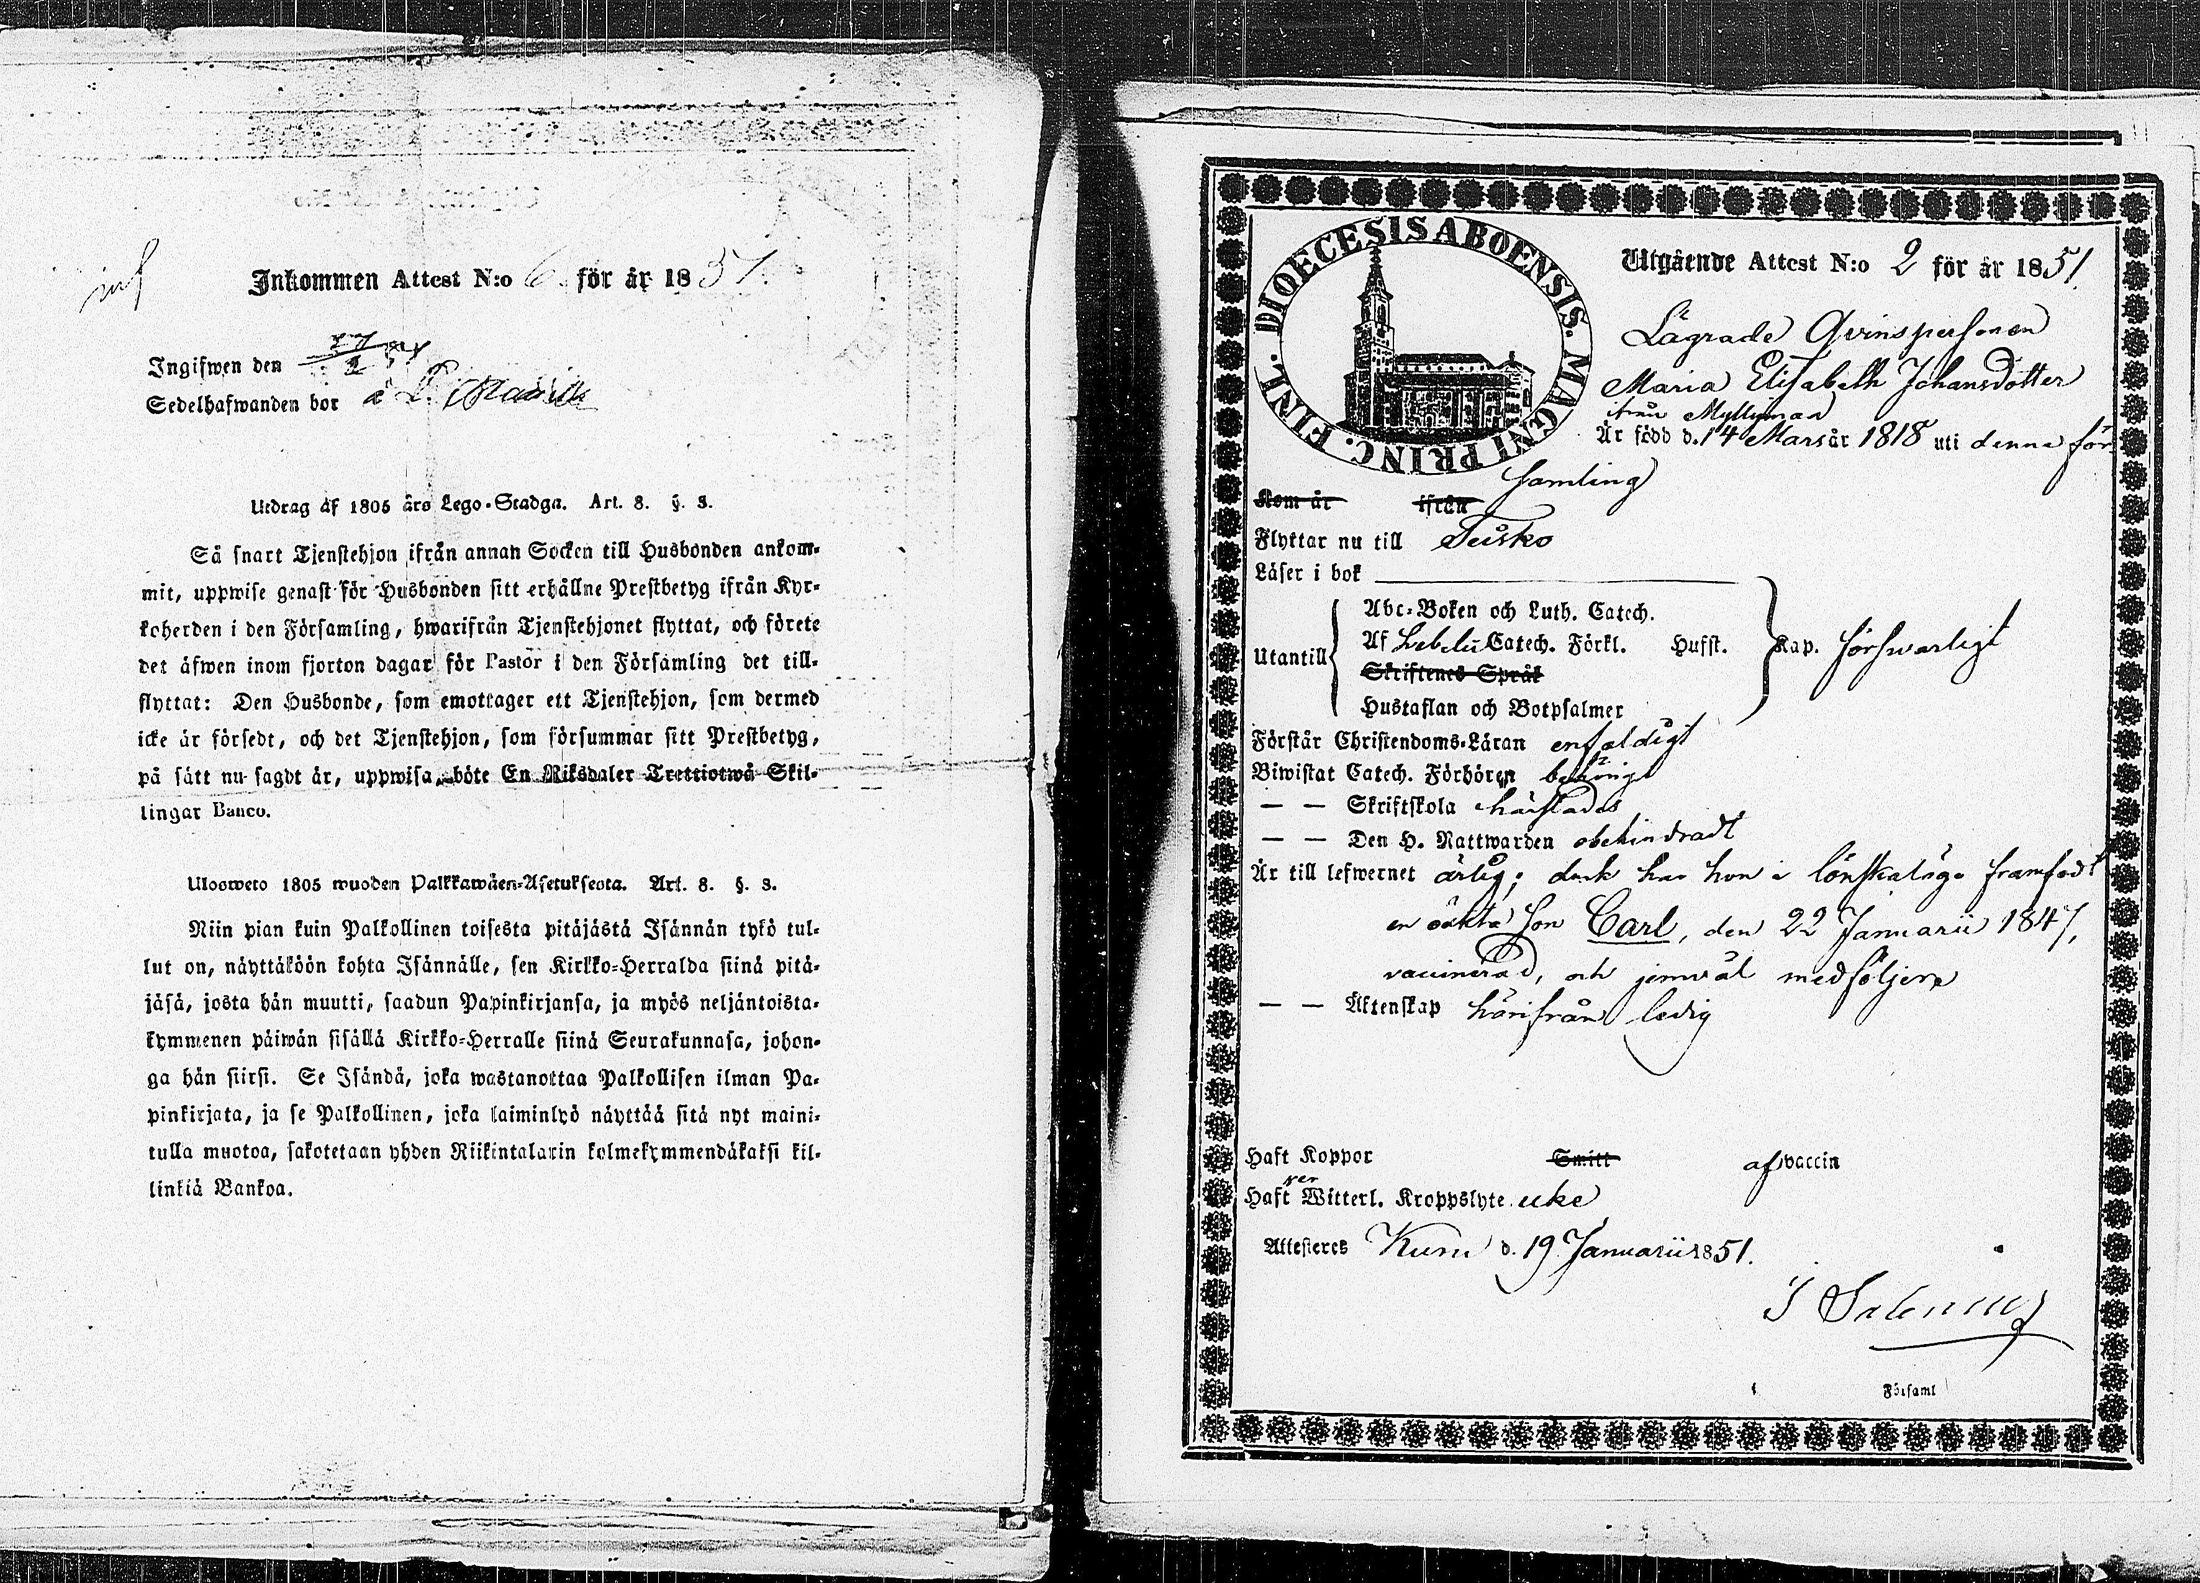 Inkommen Attest N:o 6 för år 1851.
Ingifwen den
Sedelhafwanden bor å
Utdrag af 1805 års Lego-Stadga. Art. 8. §. 3.
Så snart Tjenstehjon ifrån annan Socken till Husbonden ankom-
mit, uppwise genast för Husbonden sitt erhållne Prestbetyg ifrån Kyr-
koherden i den Församling, hwarifrån Tjenstehjonet flyttat, och förete
det äfwen inom fjorton dagar för Pastor i den Församling det till-
flyttat: Den Husbonde, som emottager ett Tjenstehjon, som dermed
icke är försedt, och det Tjenstehjon, som försummar sitt Prestbetyg,
på sätt nu sagdt är, uppwisa, böte En Riksdaler Trettiotwå Skil-
lingar Banco.
Ulosweto 1805 wuoden Palkkawäen-Asetuksesta. Art. 8. §. 3.
Niin pian kuin Palkollinen toisesta pitäjästä Isännän tykö tul-
lut on, näyttäköön kohta Isännälle, sen Kirkko-Herralda siinä pitä-
jäsä, josta hän muutti, saadun Papinkirjansa, ja myös neljäntoista-
kymmenen päiwän sisällä Kirkko-Herralle siinä Seurakunnasa, johon-
ga hän siirsi. Se Isändä, joka wastanottaa Palkollisen ilman Pa-
pinkirjata, ja se Palkollinen, joka laiminlyö näyttää sitä nyt maini-
tulla muotoa, sakotetaan yhden Riikintalarin kolmekymmendäkaksi kil-
linkiä Bankoa.
DIOECESIS ABOENSIS. MAGNI PRINC. FINL.
Utgående Attest N:o 2 för år 1851.
Lägrade Qvinspersonen
Maria Elisabeth Johansdotter
ifrån Myllymaa
Är född d. 14 Mars år 1818 uti denna för
samling
Kom år ifrån
Flyttar nu till
Läser i bok
Utantill
Abc-Boken och Luth. Catech.
Af Catech. Förkl. Hufst.
Skriftenes Språk
Hustaflan och Botpsalmer
Kap. försvarligt
Förstår Christendoms-Läran enfaldigt
Biwistat Catech. Förhören behörigt
— — Skriftskola härstädes
— — Den H. Nattwarden obehindradt
Är till lefwernet ärlig; dock har hon i lönskaläge framfödt
en oäkta Son Carl, den 22 Januarii 1847,
vaccinerad, och jemväl medföljera
— — Äktenskap härifrån ledig
Haft Koppor Smitt af vaccin
Haft Witterl. Kroppslyte icke
Attesteres Kumo d. 19 Januarii 1851.
Församl